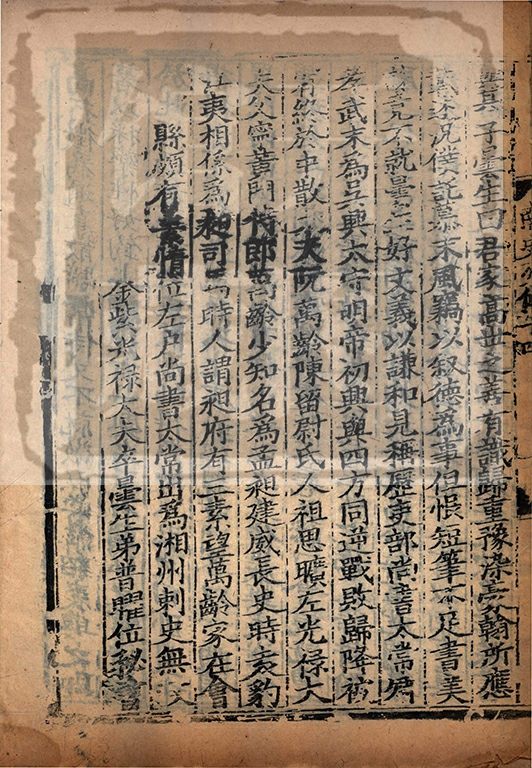 其子曇生曰君家高世之善有識歸重豫染毫翰所應
載述況僕託慕末風竊以叙德為事但恨短筆不足書美
誄竟不就曇生好文義以謙和見稱歷吏部尚書太常卿
孝武末為吳興太守明帝初興與四方同逆戰敗歸降被
宥終於中散大夫阮萬齡陳留尉氏人祖思曠左光祿大
夫父寧黃門侍郎萬齡少知名為孟昶建威長史時袁豹
江夷相係為昶司馬時人謂昶府有三素望萬齡家在會
縣頗有素情位左户尚書太常出為湘州刺史無
金紫光祿大夫卒曇生弟普曜位秘書